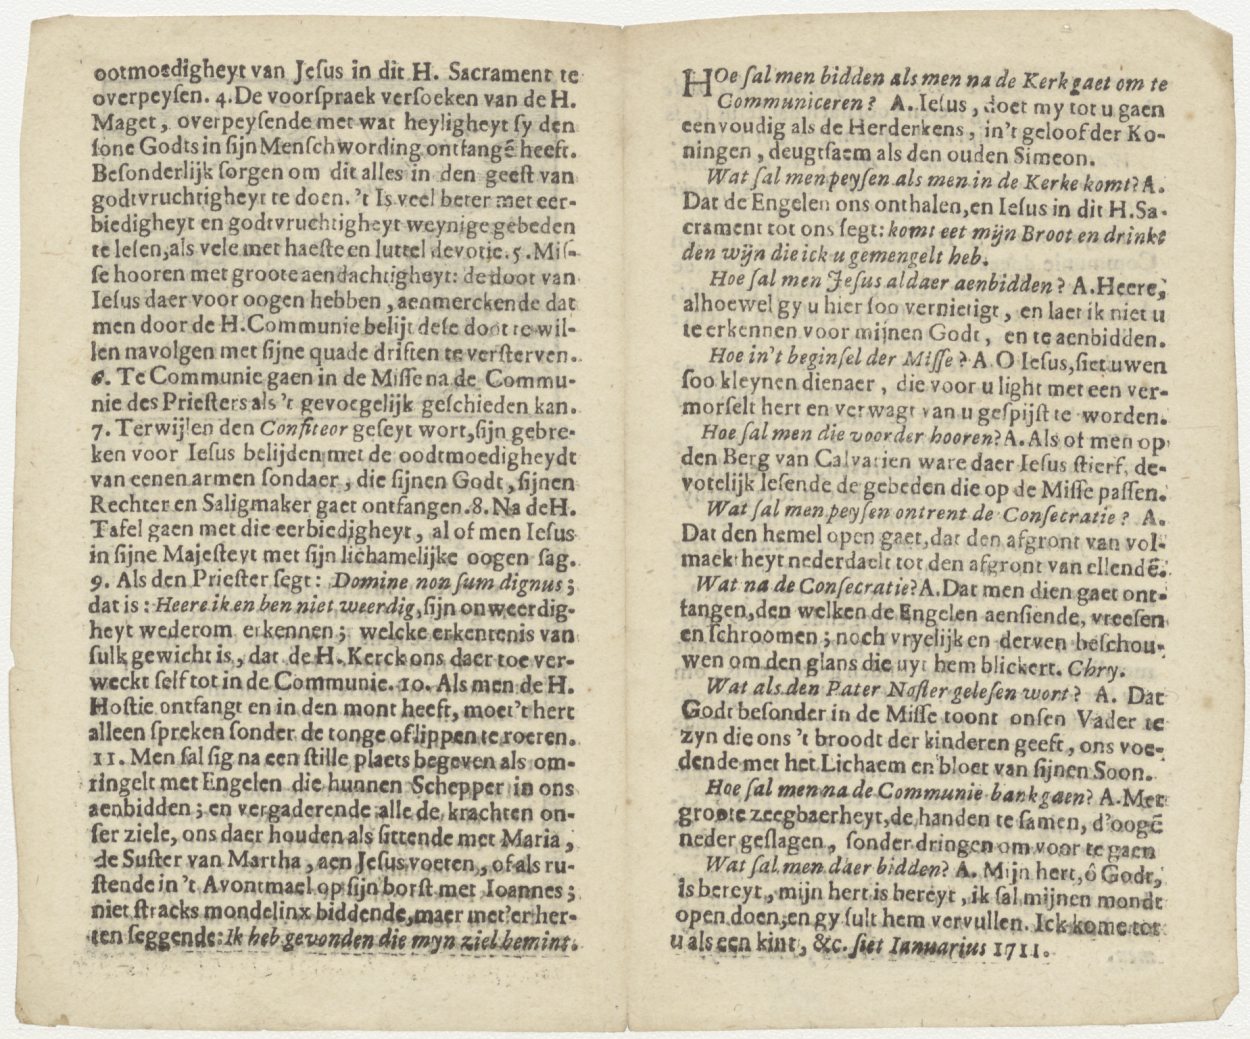 ootmoedigheyt van Jeſus in dit H. Sacrament te
overpeyſen. 4. De voorſpraek verſoeken van de H.
Maget, overpeyſende met wat heyligheyt ſy den
ſone Godts in ſijn Menſchwording ontfangē heeft.
Beſonderlijk ſorgen om dit alles in den geeſt van
godtvruchtigheyt te doen. 't Is veel beter met eer-
biedigheyt en godtvruchtigheyt weynige gebeden
te leſen, als vele met haeſte en luttel devotie. 5. Miſ-
ſe hooren met groote aendachtigheyt: de doot van
Ieſus daer voor oogen hebben, aenmerckende dat
men door de H. Communie belijt deſe doot te wil-
len navolgen met ſijne quade driften te verſterven.
6. Te Communie gaen in de Miſſe na de Commu-
nie des Prieſters als 't gevoegelijk geſchieden kan.
7. Terwijlen den Confiteor geſeyt wort, ſijn gebre-
ken voor Ieſus belijden met de oodtmoedigheydt
van eenen armen ſondaer, die ſijnen Godt, ſijnen
Rechter en Saligmaker gaet ontfangen. 8. Na de H.
Tafel gaen met die eerbiedigheyt, al of men Ieſus
in ſijne Majeſteyt met ſijn lichamelijke oogen ſag.
9. Als den Prieſter ſegt: Domine non ſum dignus;
dat is: Heere ik en ben niet weerdig, ſijn onweerdig-
heyt wederom erkennen; welcke erkentenis van
ſulk gewicht is, dat de H. Kerck ons daer toe ver-
weckt ſelf tot in de Communie. 10. Als men de H.
Hoſtie ontfangt en in den mont heeft, moet 't hert
alleen ſpreken ſonder de tonge of lippen te roeren.
11. Men ſal ſig na een ſtille plaets begeven als om-
ringelt met Engelen die hunnen Schepper in ons
aenbidden; en vergaderende alle de krachten on-
ſer ziele, ons daer houden als ſittende met Maria,
de Suſter van Martha, aen Jeſus voeten, of als ru-
ſtende in 't Avontmael op ſijn borſt met Ioannes;
niet ſtracks mondelinx biddende, maer met'er her-
ten ſeggende: Ik heb gevonden die myn ziel bemint.
HOe ſal men bidden als men na de Kerk gaet om te
Communiceren? A. Ieſus, doet my tot u gaen
eenvoudig als de Herderkens, in't geloof der Ko-
ningen, deugtſaem als den ouden Simeon.
Wat ſal men peyſen als men in de Kerke komt? A.
Dat de Engelen ons onthalen, en Ieſus in dit H. Sa-
crament tot ons ſegt: komt eet mijn Broot en drinkt
den wijn die ick u gemengelt heb.
Hoe ſal men Jeſus aldaer aenbidden? A. Heere,
alhoewel gy u hier ſoo vernietigt, en laet ik niet u
te erkennen voor mijnen Godt, en te aenbidden.
Hoe in't beginſel der Miſſe? A. O Ieſus, ſiet uwen
ſoo kleynen dienaer, die voor u light met een ver-
morſelt hert en verwagt van u geſpijſt te worden.
Hoe ſal men die voorder hooren? A. Als of men op
den Berg van Calvarien ware daer Ieſus ſtierf, de-
votelijk leſende de gebeden die op de Miſſe paſſen.
Wat ſal men peyſen ontrent de Conſecratie? A.
Dat den hemel open gaet, dat den afgront van vol-
maektheyt nederdaelt tot den afgront van ellendē.
Wat na de Conſecratie? A. Dat men dien gaet ont-
fangen, den welken de Engelen aenſiende, vreeſen
en ſchroomen; noch vryelijk en derven beſchou-
wen om den glans die uyt hem blickert. Chry.
Wat als den Pater Noſter geleſen wort? A. Dat
Godt beſonder in de Miſſe toont onſen Vader te
zyn die ons 't broodt der kinderen geeft, ons voe-
dende met het Lichaem en bloet van ſijnen Soon.
Hoe ſal men na de Communie bank gaen? A. Met
groote zeegbaerheyt, de handen te ſamen, d'oogē
neder geſlagen, ſonder dringen om voor te gaen
Wat ſal men daer bidden? A. Mijn hert, ô Godt,
is bereyt, mijn hert is bereyt, ik ſal mijnen mondt
open doen, en gy ſult hem vervullen. Ick kome tot
u als een kint, &c. ſiet Ianuarius 1711.